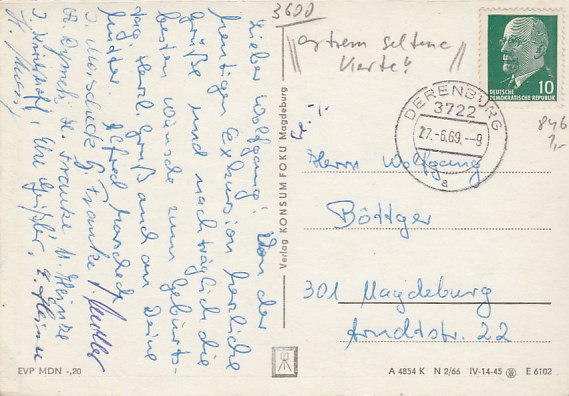 Lieber Wolfgang! Von der
heutigen Exkursion herzliche
Grüße und nachträglich die
besten Wünsche zum Geburts-
tag. Herzl. Gruß auch an Deine
Mutter. Alfred
G. Franke
H. Franke U. Heinze
Verlag KONSUM FOKU Magdeburg
3600
extrem seltene
Karte!
DEUTSCHE
DEMOKRATISCHE REPUBLIK
10
DERENBURG
3722
27.-6.69.--9
a
846
1,-
Herrn Wolfgang
Böttger
301 Magdeburg
Arndtstr. 22
EVP MDN -,20
A 4854 K N 2/66 IV-14-45 E 6102